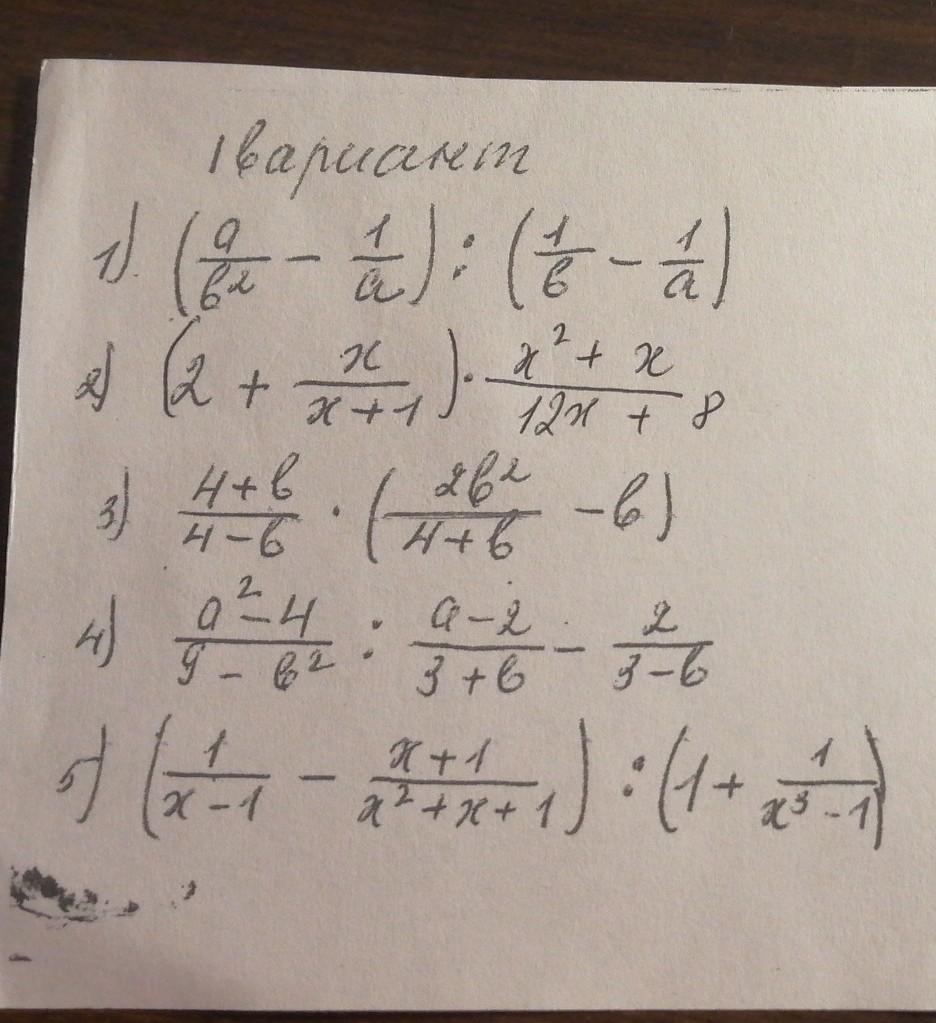 1 вариант
1) (a/b² - 1/a) : (1/b - 1/a)
2) (2 + x/(x+1)) · (x² + x)/(12x + 8)
3) (4+b)/(4-b) · (2b²/(4+b) - b)
4) (a²-4)/(9-b²) : (a-2)/(3+b) - 2/(3-b)
5) (1/(x-1) - (x+1)/(x²+x+1)) : (1 + 1/(x³-1))